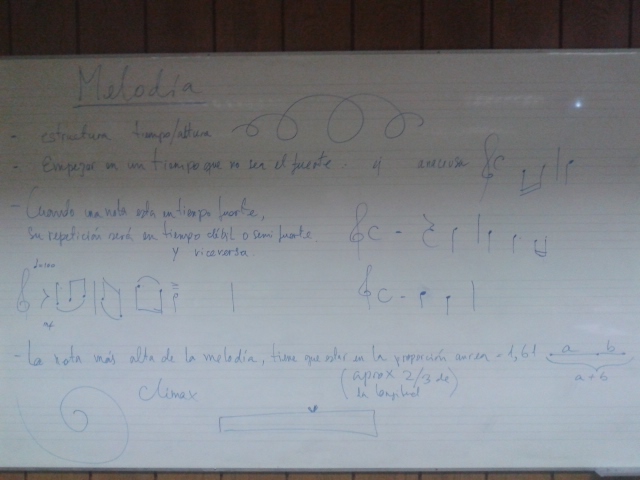 Melodía
- estructura tiempo/altura
- Empezar en un tiempo que no sea el fuerte. ej anacrusa C
- Cuando una nota esta en tiempo fuerte,
su repetición será en tiempo débil o semi fuerte
y viceversa.
C -
C -
mf
- La nota más alta de la melodía, tiene que estar en la proporción aurea = 1,61 a b
(aprox 2/3 de
la longitud)
a+b
Climax